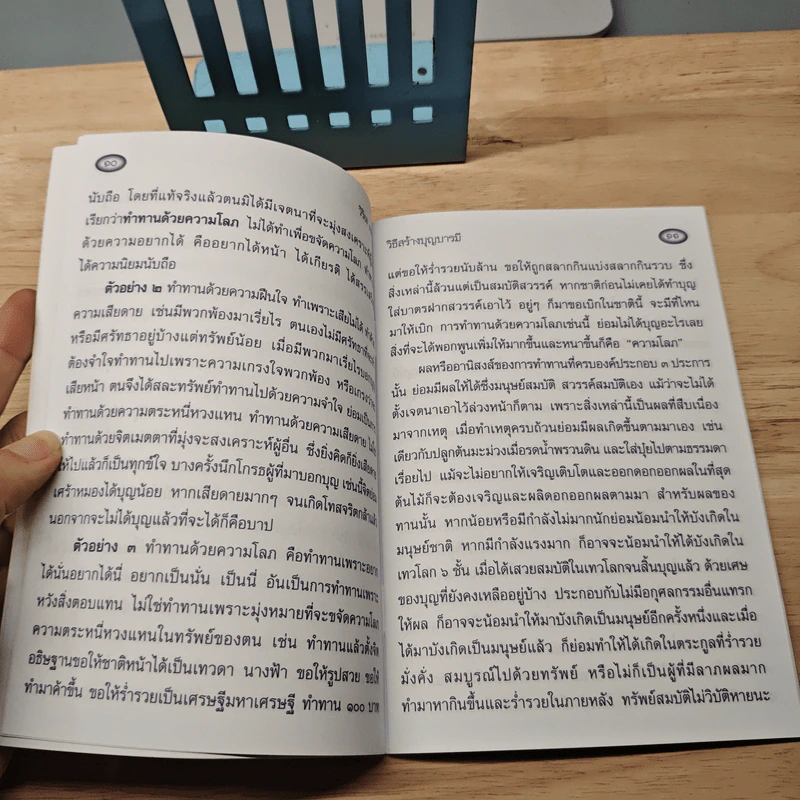 ๑๐
นับถือ โดยที่แท้จริงแล้วตนมิได้มีเจตนาที่จะมุ่งสงเคราะห์
เรียกว่าทำทานด้วยความโลภ ไม่ได้ทำเพื่อขจัดความโลภ
ด้วยความอยากได้ คืออยากได้หน้า ได้เกียรติ ได้
ได้ความนิยมนับถือ
ตัวอย่าง ๒ ทำทานด้วยความฝืนใจ ทำเพราะเสียไม่ได้
ความเสียดาย เช่นมีพวกพ้องมาเรี่ยไร ตนเองไม่มีศรัทธา
หรือมีศรัทธาอยู่บ้างแต่ทรัพย์น้อย เมื่อมีพวกมาเรี่ยไร
ต้องจำใจทำทานไปเพราะความเกรงใจพวกพ้อง หรือเกรงว่า
เสียหน้า ตนจึงได้สละทรัพย์ทำทานไปด้วยความจำใจ ย่อมเป็น
ทำทานด้วยความตระหนี่หวงแหน ทำทานด้วยความเสียดาย
ทำทานด้วยจิตเมตตาที่มุ่งจะสงเคราะห์ผู้อื่น ซึ่งยิ่งคิดก็ยิ่ง
ให้ไปแล้วก็เป็นทุกข์ใจ บางครั้งนึกโกรธผู้ที่มาบอกบุญ เช่นนี้จิตย่อม
เศร้าหมองได้บุญน้อย หากเสียดายมากๆ จนเกิดโทสจริตกล้าแล้ว
นอกจากจะไม่ได้บุญแล้วที่จะได้ก็คือบาป
ตัวอย่าง ๓ ทำทานด้วยความโลภ คือทำทานเพราะอยาก
ได้นั่นอยากได้นี่ อยากเป็นนั่น เป็นนี่ อันเป็นการทำทานเพราะ
หวังสิ่งตอบแทน ไม่ใช่ทำทานเพราะมุ่งหมายที่จะขจัดความโลภ
ความตระหนี่หวงแหนในทรัพย์ของตน เช่น ทำทานแล้วตั้งจิต
อธิษฐานขอให้ชาติหน้าได้เป็นเทวดา นางฟ้า ขอให้รูปสวย ขอให้
ทำมาค้าขึ้น ขอให้ร่ำรวยเป็นเศรษฐีมหาเศรษฐี ทำทาน ๑๐๐ บาท
วิธีสร้างบุญบารมี ๑๑
แต่ขอให้ร่ำรวยนับล้าน ขอให้ถูกสลากกินแบ่งสลากกินรวบ ซึ่ง
สิ่งเหล่านี้ล้วนแต่เป็นสมบัติสวรรค์ หากชาติก่อนไม่เคยได้ทำบุญ
ใส่บาตรฝากสวรรค์เอาไว้ อยู่ๆ ก็มาขอเบิกในชาตินี้ จะมีที่ไหน
มาให้เบิก การทำทานด้วยความโลภเช่นนี้ ย่อมไม่ได้บุญอะไรเลย
สิ่งที่จะได้พอกพูนเพิ่มให้มากขึ้นและหนาขึ้นก็คือ “ความโลภ”
ผลหรืออานิสงส์ของการทำทานที่ครบองค์ประกอบ ๓ ประการ
นั้น ย่อมมีผลให้ได้ซึ่งมนุษย์สมบัติ สวรรค์สมบัติเอง แม้ว่าจะไม่ได้
ตั้งเจตนาเอาไว้ล่วงหน้าก็ตาม เพราะสิ่งเหล่านี้เป็นผลที่สืบเนื่อง
มาจากเหตุ เมื่อทำเหตุครบถ้วนย่อมมีผลเกิดขึ้นตามมาเอง เช่น
เดียวกับปลูกต้นมะม่วงเมื่อรดน้ำพรวนดิน และใส่ปุ๋ยไปตามธรรมดา
เรื่อยไป แม้จะไม่อยากให้เจริญเติบโตและออกดอกออกผลในที่สุด
ต้นไม้ก็จะต้องเจริญและผลิดอกออกผลตามมา สำหรับผลของ
ทานนั้น หากน้อยหรือมีกำลังไม่มากนักย่อมน้อมนำให้บังเกิดใน
มนุษย์ชาติ หากมีกำลังแรงมาก ก็อาจจะน้อมนำให้ได้บังเกิดใน
เทวโลก ๖ ชั้น เมื่อได้เสวยสมบัติในเทวโลกจนสิ้นบุญแล้ว ด้วยเศษ
ของบุญที่ยังคงเหลืออยู่บ้าง ประกอบกับไม่มีอกุศลกรรมอื่นแทรก
ให้ผล ก็อาจจะน้อมนำให้มาบังเกิดเป็นมนุษย์อีกครั้งหนึ่งและเมื่อ
ได้มาบังเกิดเป็นมนุษย์แล้ว ก็ย่อมทำให้ได้เกิดในตระกูลที่ร่ำรวย
มั่งคั่ง สมบูรณ์ไปด้วยทรัพย์ หรือไม่ก็เป็นผู้ที่มีลาภผลมาก
ทำมาหากินขึ้นและร่ำรวยในภายหลัง ทรัพย์สมบัติไม่วิบัติหายนะ